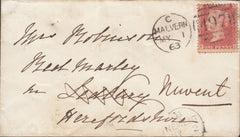 C
MALVERN
MY 1
63
Mrs Robinson
Much Marley
nr Ledbury Newent
Herefordshire